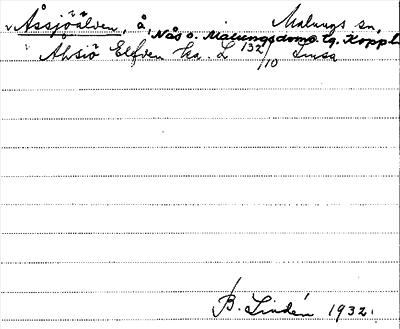 v Åssjöälven, å, Malungs sn,
Nås o. Malungsdoms. tg. Koppb. l.
Ahsiö Elfven ka. L 132/10 Linsa
B. Lindén 1932.